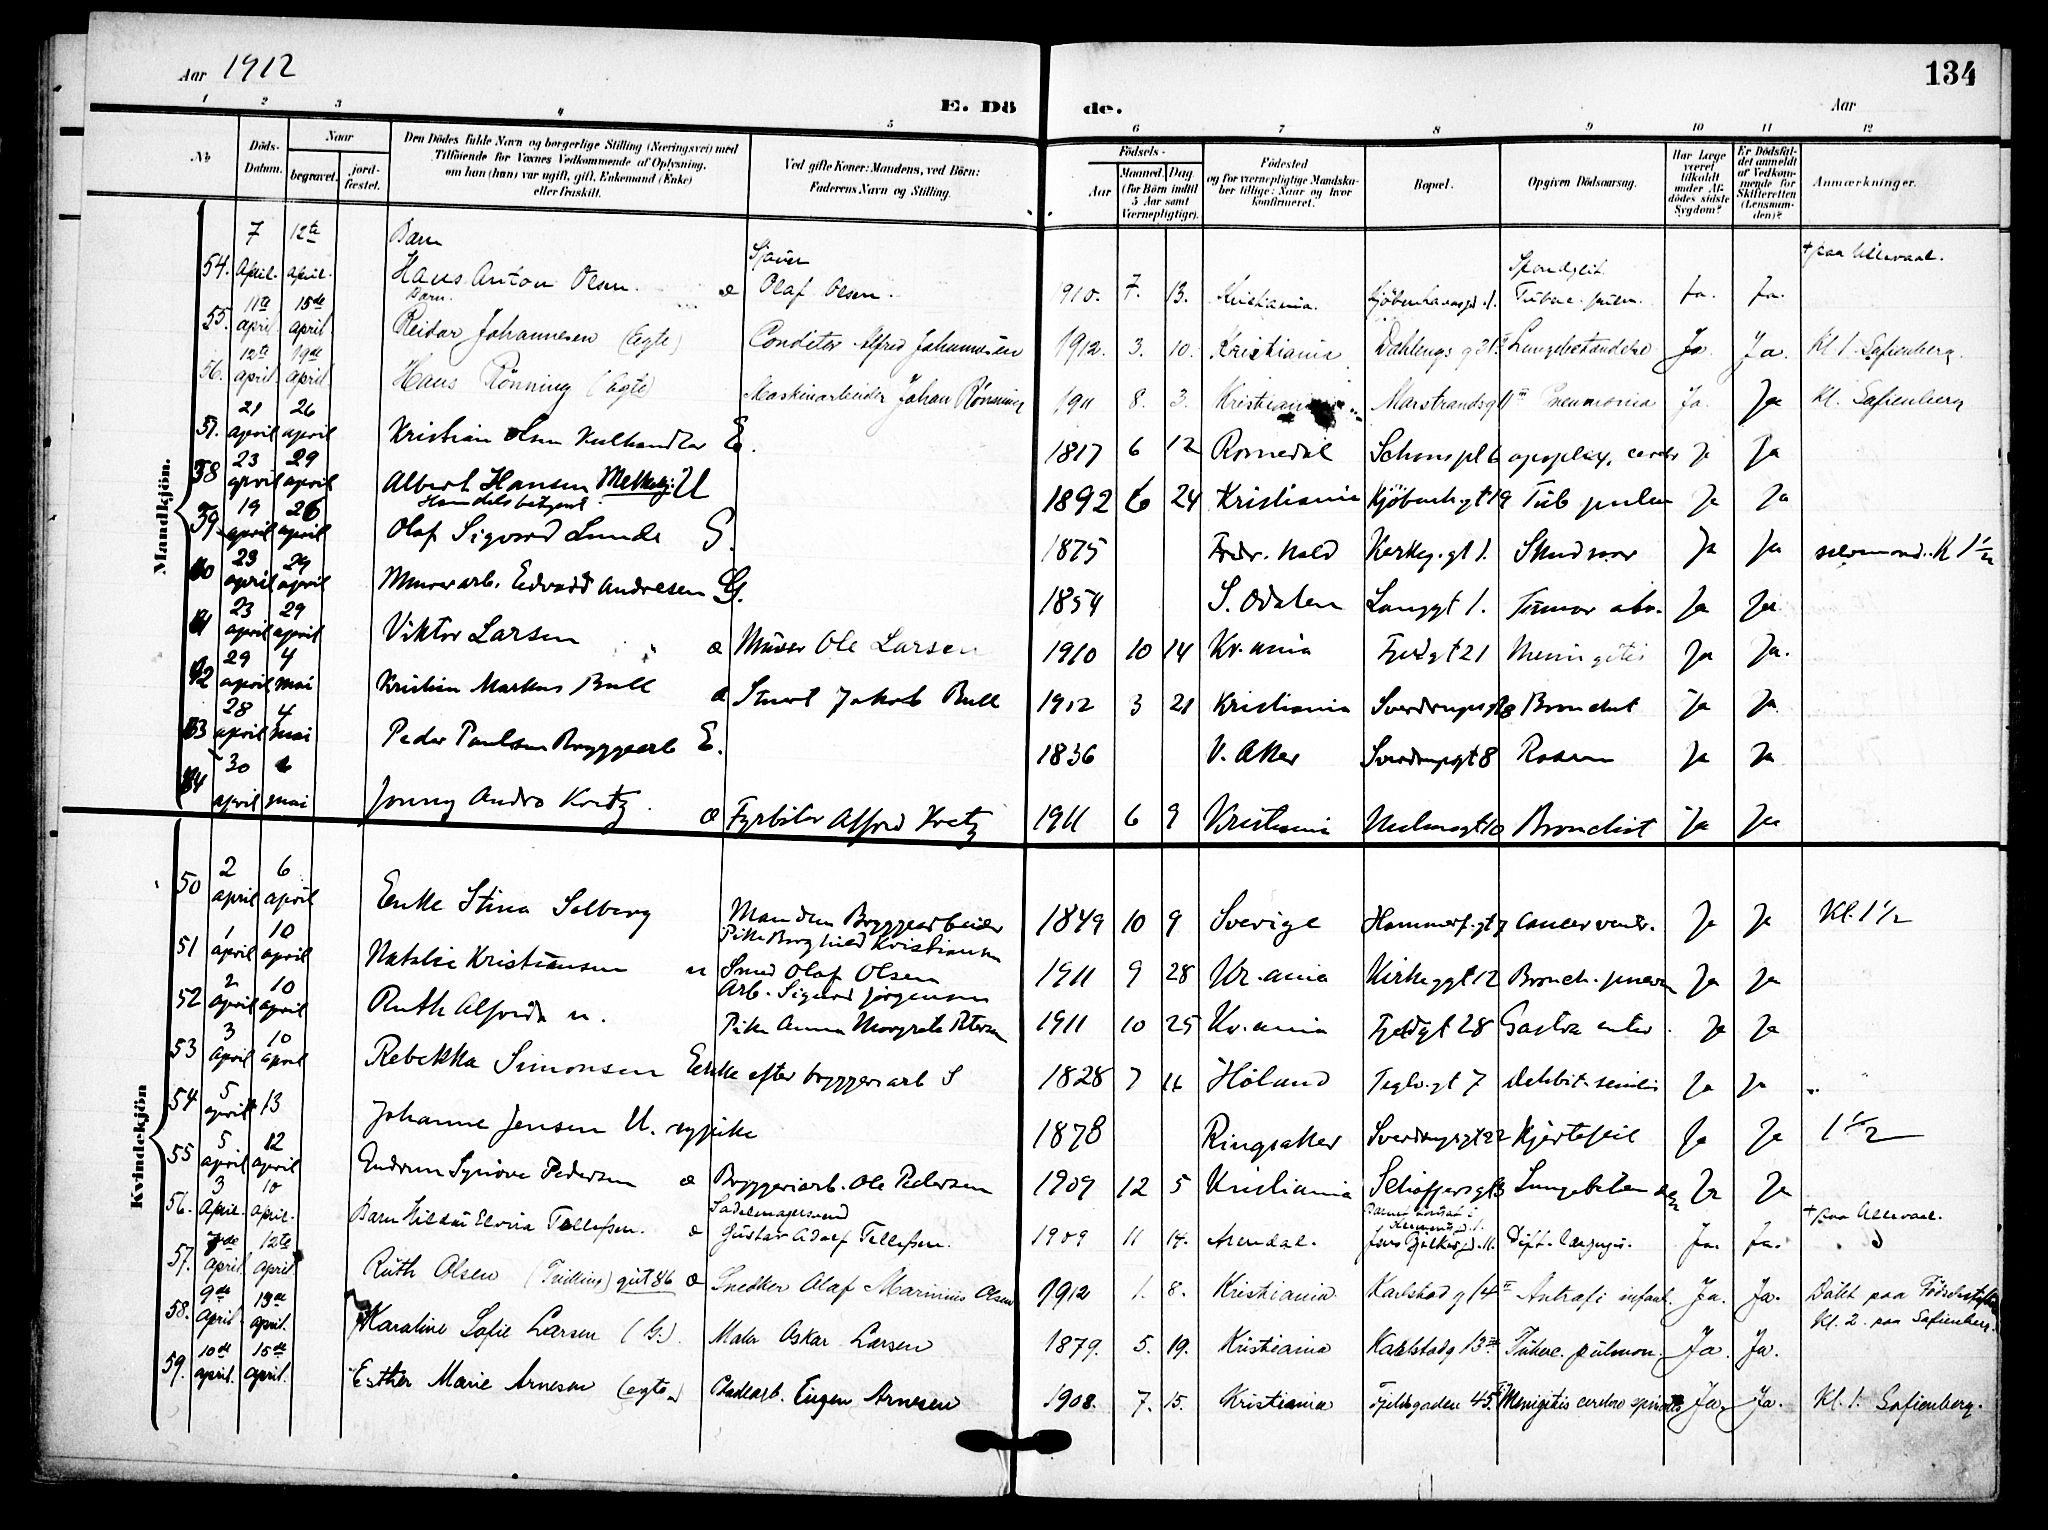 Aar 1912
134
E. Dö de.
Aar
1 2 3 4 5 6 7 8 9 10 11 12
No
Döds-Datum.
Naar
begravet.
jord-fæstet.
Den Dödes fulde Navn og borgerlige Stilling (Næringsvei) med
Tilföiende for Voxnes Vedkommende af Oplysning,
om han (hun) var ugift, gift, Enkemand (Enke)
eller fraskilt.
Ved gifte Koner: Mandens, ved Börn:
Faderens Navn og Stilling.
Födsels-
Aar
Maaned. Dag
(for Börn indtil
5 Aar samt
Værnepligtige).
Födested
og for værnepligtige Mandska-
ber tillige: Naar og hvor
konfirmeret.
Bopæl.
Opgiven Dödsaarsag.
Har Læge
været
tilkaldt
under Af-
dödes sidste
Sygdom?
Er Dödsfal-
det anmeldt
af Vedkom-
mende for
Skifteretten
(Lensman-
den)?
Anmærkninger.
Mandkjön.
54. 7 April. 12te April. Barn Hans Anton Olsen. æ Sjauer Olaf Olsen. 1910. 7. 13. Kristiania. Kjöbenhavnsgd. 1. Spondylit. Tuberc. pulm. Ja. Ja. + paa Ullevaal.
55. 11te april 15de april Barn. Reidar Johannesen (Egte) Conditor Alfred Johannesen 1912. 3. 10. Kristiania Dahlengs g 31 Lungebetændelse Ja. Ja. Kl 1. Sofienberg.
56. 12te april. 19de april Hans Rönning (Egte) Maskinarbeider Johan Rönning 1911 8. 3. Kristiania Marstrandsg 11 Pneumonia Ja. Ja Kl. Sofienberg
57. 21 april 26 april Kristian Olsen Kulhandler E. 1817 6 12 Romedal Schouspl 6 apoplex. cerebr Ja Ja
58 23 april 29 april Albert Hansen U 1892 6 24 Kristiania Kjöbenh.gt 19 Tub pulm Ja Ja
59 19 april 26 april Handelsbetjent Olaf Sigvard Lunde G. 1875 Fredr. hald Kirkeg.gt 1. Skudsaar Ja Ja selvmord. K 1 1/2
60 23 april 29 april Murerarb. Edvard Andresen G. 1854 S. Odalen Langgt 1. Tumor abd. Ja Ja
61 23 april 29 april Viktor Larsen æ Murer Ole Larsen 1910 10 14 Kr.ania Fjeldgt 21 Meningitis Ja Ja.
62 29 april 4 mai Kristian Markus Bull æ Stuert Jakob Bull 1912 3 21 Kristiania Sverdrupsgt 8 Bronchit Ja Ja
63 28 april 4 mai Peder Paulsen Bryggearb E. 1836 V. Aker Sverdrupgt 8 Rosen Ja Ja
64 30 april 6 mai Jonny Andro Kretz. æ Fyrböter Alfred Kretz 1911 6 9 Kristiania 10 Bronchit Ja Ja
Kvindekjön
50 2 april 6 april Enke Stina Solberg Manden Bryggearbeider 1849 10 9 Sverige Hammerf.gt 7 cancer ventr. Ja Ja Kl. 1 1/2
51 1 april 10 april Natalie Kristiansen u Pike Borghild Kristiansen Smed Olaf Olsen 1911 9 28 Kr.ania Kirkeggt 12 Bronch. pneum Ja Ja
52 2 april 10 april Ruth Alfrida u. Arb. Sigurd Jörgensen Pike Anna Margrete Petersen 1911 10 25 Kr.ania Fjeldgt 28 Gastro enter. Ja Ja
53 3 april 10 april Rebekka Simonsen Enke efter bryggeriarb S 1828 7 16 Höland Teglv.gt 7 Debilit. senilis Ja Ja „ „
54 5 april 13 Johanne Jensen U. sypike 1878 Ringsaker Sverdrupsgt 22 Hjertefeil Ja Ja 1 1/2
55 5 april 12 april Gudrun Synöve Pedersen æ Bryggeriarb. Ole Pedersen 1909 12 5 Kristiania Schöffersgt 3 Lungebetændelse Ja Ja
56. 3 April. 10 april. Barn Hildur Elvira Tellefsen. æ Sadelmagersvend Gustav Adolf Tellefsen. 1909 11 14. Arendal. Jens Bjelkesgd. 11. Dift. laryngis. Ja. Ja. + paa Ullevaal.
57. April. 12te April Ruth Olsen (Tvilling) æ Snedker Olaf Marinius Olsen 1912 1. 8. Kristiania Karlstad g 14 Atrofi infant. Ja. Ja. Döbt paa Födselsstiftelsen
58. 9de April. 13de april. Karoline Sofie Larsen (G.). Maler Oskar Larsen 1879. 5. 19. Kristiania Karlstadg 13 Tuberc. pulmon. Ja. Ja. Kl. 2. paa Sofienberg.
59. 10de april. 15de april. Esther Marie Arnesen (egte) Eugen Arnesen 1908. 7. 15. Kristiania Fjeldgaden 45 Menigitis cerebro spinalis Ja. Ja. Kl. 1. Sofienberg.